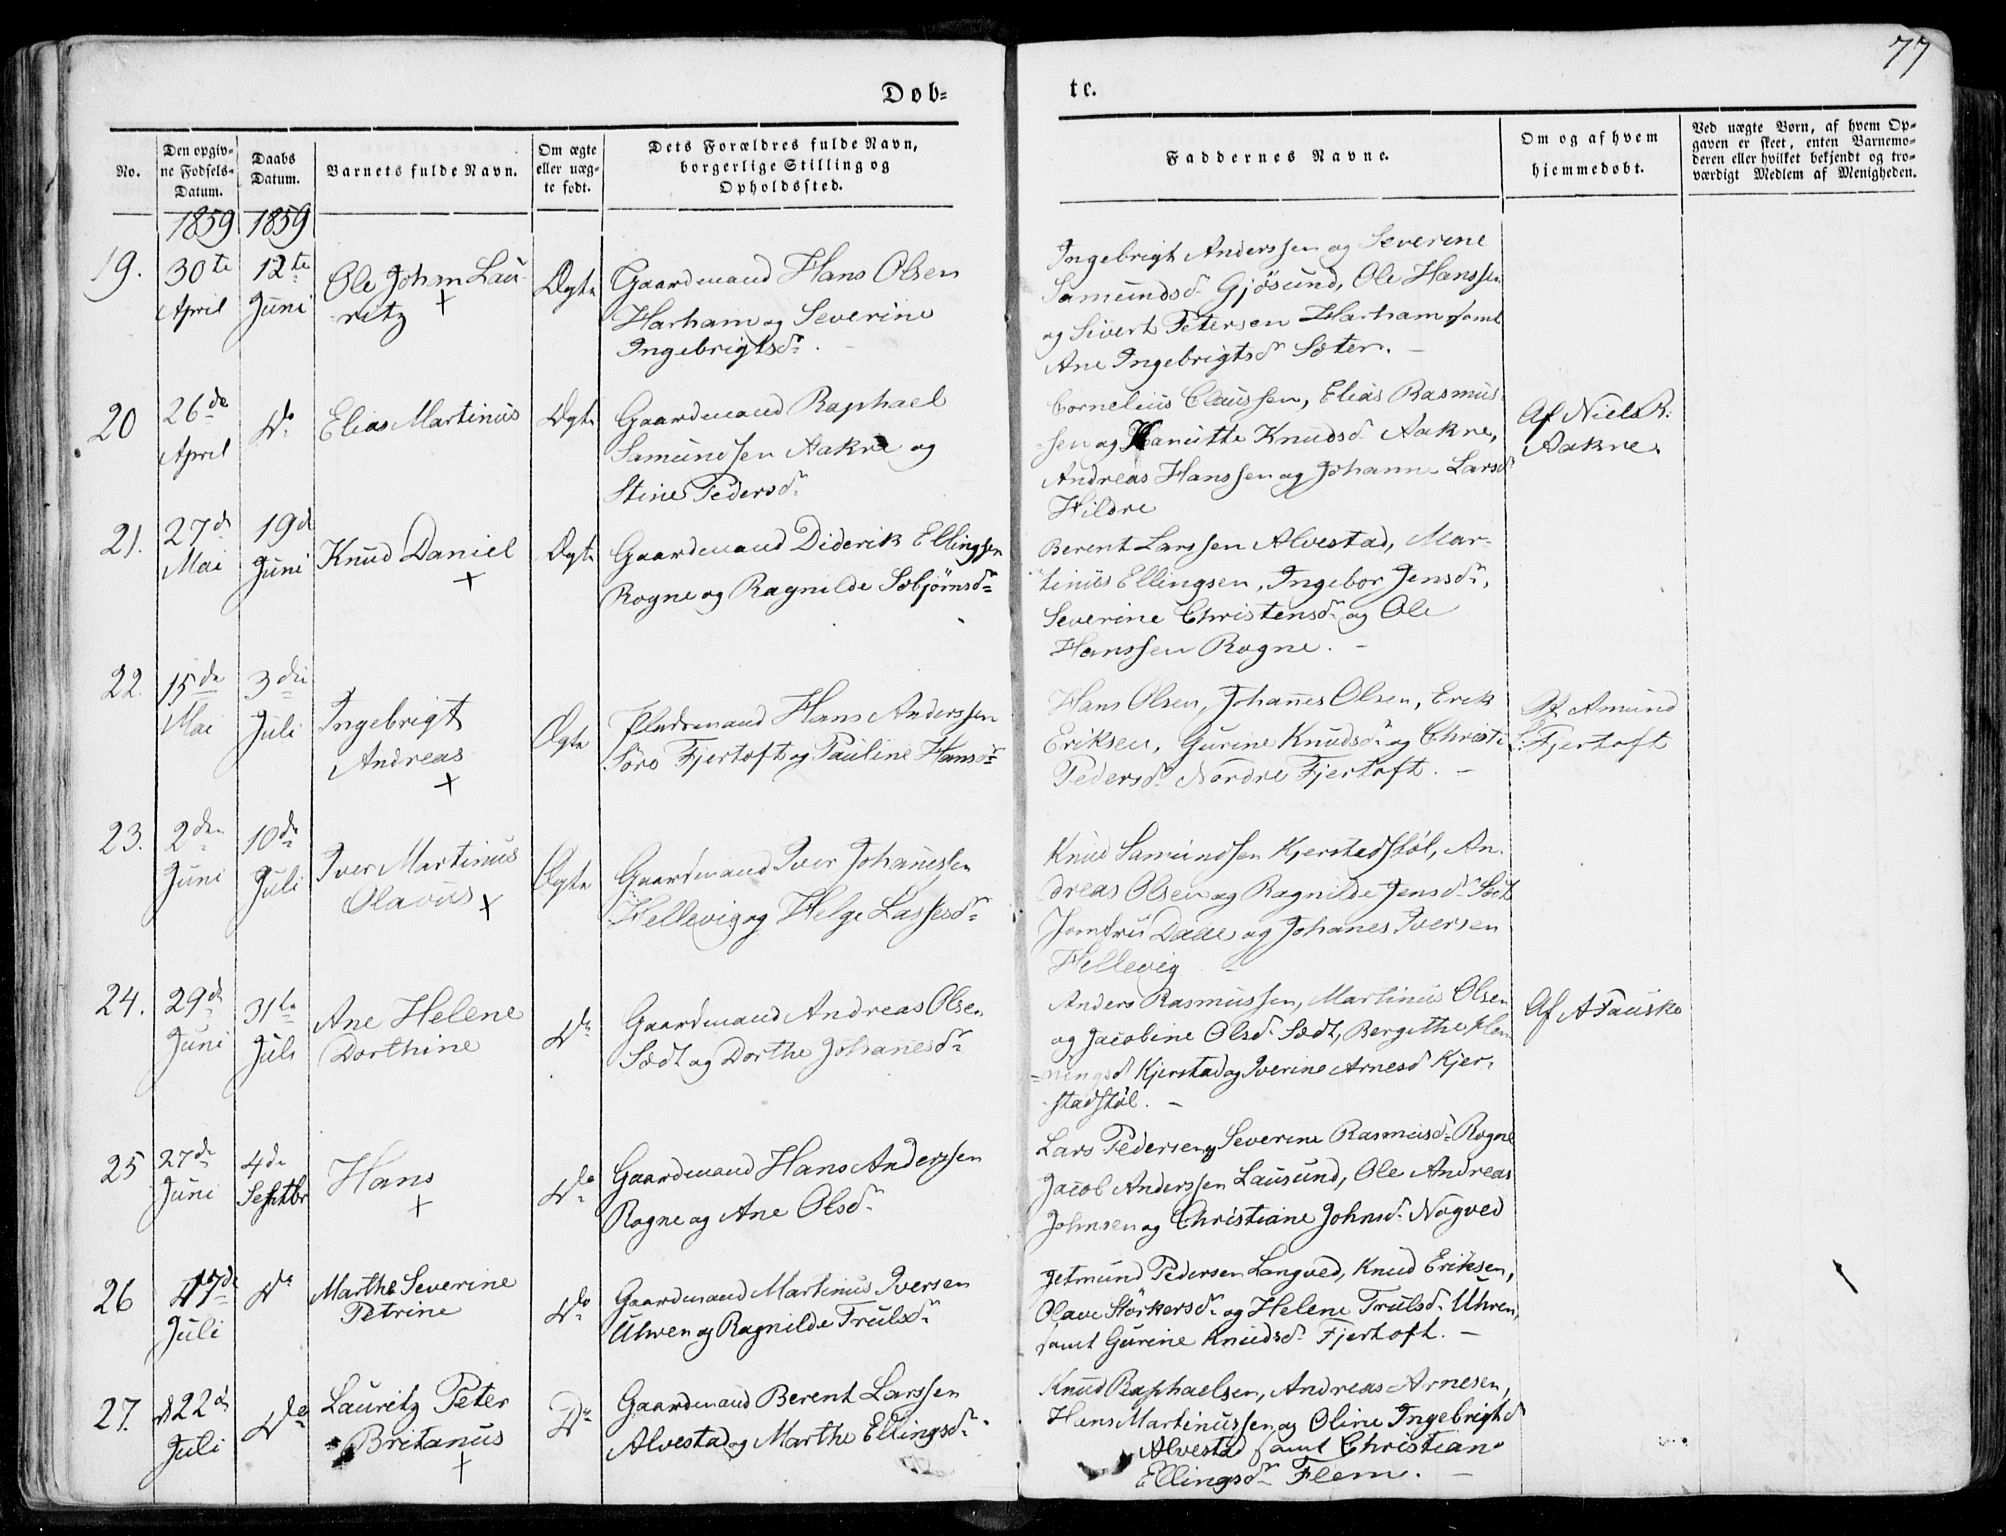 77
Døb-
te.
No.
Den opgiv-
ne Fødsels-
Datum.
Daabs
Datum.
Barnets fulde Navn.
Om ægte
eller uæg-
te født.
Dets Forældres fulde Navn,
borgerlige Stilling og
Opholdssted.
Faddernes Navne.
Om og af hvem
hjemmedøbt.
Ved uægte Børn, af hvem Op-
gaven er skeet, enten Barnemo-
deren eller hvilket bekjendt og tro-
værdigt Medlem af Menigheden.
1859 1859
19.
30te
April
12te
Juni
Ole Johan Lau-
ritz
+
Ægte
Gaardmand Hans Olsen
Harham og Severine
Ingebrigtsdr.
Ingebrigt Anderssen og Severine
Samundsdr Gjøsund, Ole Hanssen
og Sivert Petersen Harham samt
Ane Ingebrigtsdr Sæter. —
20
26de
April
Do
Elias Martinus
Ægte
Gaardmand Raphael
Samundsen Aakre og
Stine Pedersdr
Cornelius Claussen, Elias Rasmus-
sen og Hanutte Knudsdr Aakre,
Andreas Hanssen og Johanne Larsdr
Hildre
Af Niels R.
Aakre.
21.
27de
Mai
19de
Juni
Knud Daniel
+
Ægte
Gaardmand Diderik Ellingsen
Rogne og Ragnilde Sæbjørnsdr
Berent Larssen Alvestad, Mar-
tinus Ellingsen, Ingebor Jensdr,
Severine Christensdr og Ole
Hanssen Rogne. —
22.
15de
Mai
3die
Juli
Ingebrigt
Andreas
+
Ægte
Pladsmand Hans Anderssen
Søre Fjertoft og Pauline Hansdr
Hans Olsen, Johannes Olsen, Erik
Eriksen, Gurine Knudsdr og Christi
Pedersdr Nordre Fjertoft. —
Af Amund
Fjertoft
23.
2den
Juni
10de
Juli
Iver Martinus
Olavus +
Ægte
Gaardmand Iver Johannessen
Hellevig og Helge Lassesdr
Knud Samundsen Kjerstadstøl, An-
dreas Olsen og Ragnilde Jensdr Sædt
Jomfru Dalle og Johanes Iversen
Hellevig —
24.
29de
Juni
31te
Juli
Ane Helene
Dorthine
Do
Gaardmand Andreas Olsen
Sædt og Dorthe Johanesdr
Anders Rasmussen, Martinus Olsen
og Jacobine Olsdr Sædt, Bergithe Hen-
ningsdr Kjerstad og Iverine Arnesdr Kjer-
stadstøl. —
Af A Fauske
25
27de
Juni
4de
Septbr
Hans
+
Do
Gaardmand Hans Anderssen
Rogne og Ane Olsdr
Lars Pedersen og Severine Rasmusdr Rogne
Jacob Anderssen Lausund, Ole Andreas
Johnsen og Christiane Johnsdr Nogved
26
17de
Juli
Do
Marthe Severine
Petrine
Do
Gaardmand Martinus Iversen
Uhren og Ragnilde Trulsdr
Jetmund Pedersen Langved, Knud Eriksen,
Olave Størkersdr og Helene Trulsdr Uhren,
samt Gurine Knudsdr Fjertoft. —
27.
22de
Juli
Do
Lauritz Peter
Britanus
+
Do
Gaardmand Berent Larssen
Alvestad og Marthe Ellingsdr
Knud Raphaelsen, Andreas Arnesen,
Hans Martinussen og Oline Ingebrigtsdr
Alvestad samt Christiane
Ellingsdr Flem. —